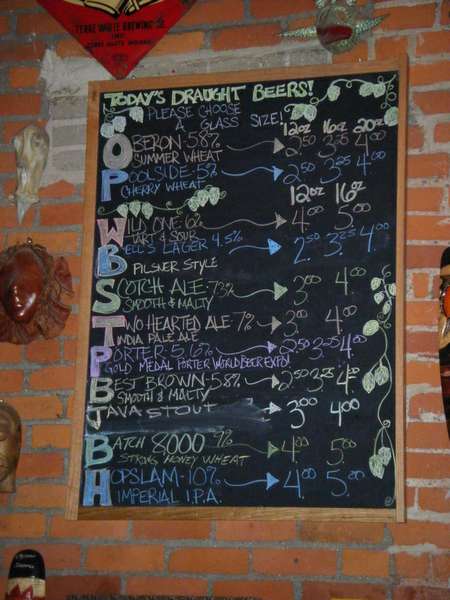 TERRE HAUTE BREWING CO
TERRE HAUTE, INDIANA
TODAY'S DRAUGHT BEERS!
PLEASE CHOOSE
A GLASS SIZE!
12oz 16oz 20oz
OBERON-5.8% 2.50 3.25 4.00
SUMMER WHEAT
POOLSIDE-5% 2.50 3.25 4.00
CHERRY WHEAT
12oz 16oz
WILD ONE-6% 4.00 5.00
TART & SOUR
BELL'S LAGER 4.5% 2.50 3.25 4.00
PILSNER STYLE
SCOTCH ALE-7.3% 3.00 4.00
SMOOTH & MALTY
TWO HEARTED ALE-7% 3.00 4.00
INDIA PALE ALE
PORTER-5.6% 2.50 3.25 4.00
GOLD MEDAL PORTER WORLD BEER EXPO!
BEST BROWN-5.8% 2.50 3.25 4.00
SMOOTH & MALTY
JAVA STOUT 3.00 4.00
BATCH 8,000 9% 4.00 5.00
STRONG HONEY WHEAT
HOPSLAM-10% 4.00 5.00
IMPERIAL I.P.A.